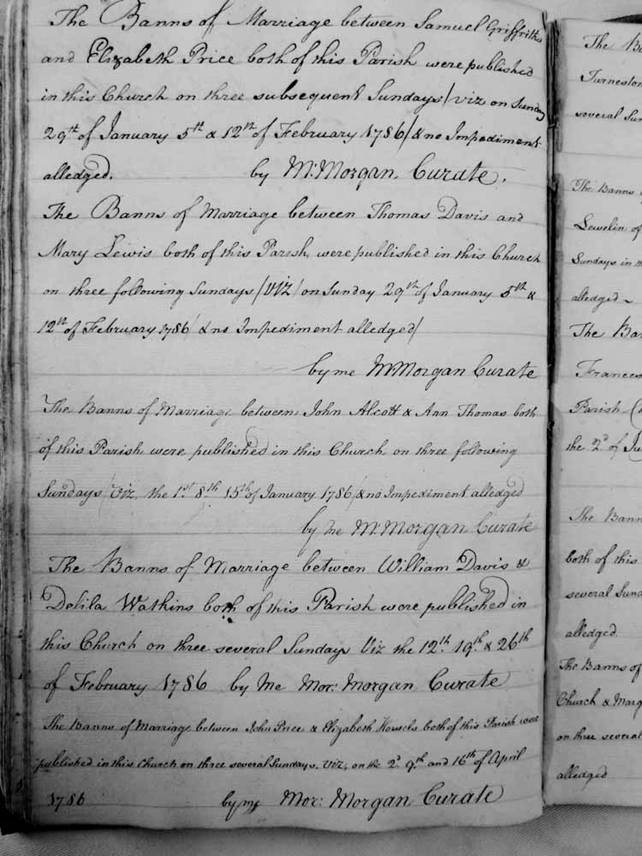 The Banns of Marriage between Samuel Griffiths
and Elizabeth Price both of this Parish were published
in this Church on three subsequent Sundays / viz on Sunday
29th of January 5th & 12th of February 1786 / & no Impediment
alledged. by M: Morgan. Curate.
The Banns of Marriage between Thomas Davis and
Mary Lewis both of this Parish, were published in this Church
on three following Sundays / Viz / on Sunday 29th of January 5th &
12th of February 1786 / & no Impediment alledged /
by me M: Morgan Curate
The Banns of Marriage between John Alcott & Ann Thomas both
of this Parish were published in this Church on three following
Sundays / Viz, the 1st 8th 15th of January 1786 / & no Impediment alledged
by Me M: Morgan Curate
The Banns of Marriage between William Davis &
Delila Watkins both of this Parish were published in
this Church on three several Sundays Viz the 12th 19th & 26th
of February 1786 by Me Mor: Morgan Curate
The Banns of Marriage between John Price & Elizabeth both of this Parish were
published in this Church on three several Sundays. Viz, on the 2d 9th and 16th of April
1786 by me Mor: Morgan Curate
The
Turneston
several
The Banns
Lewelin of
Sundays in
alledged
The
Frances
Parish
the 2d of
The
both of this
several
alledged
The Banns of
Church &
on three several
alledged